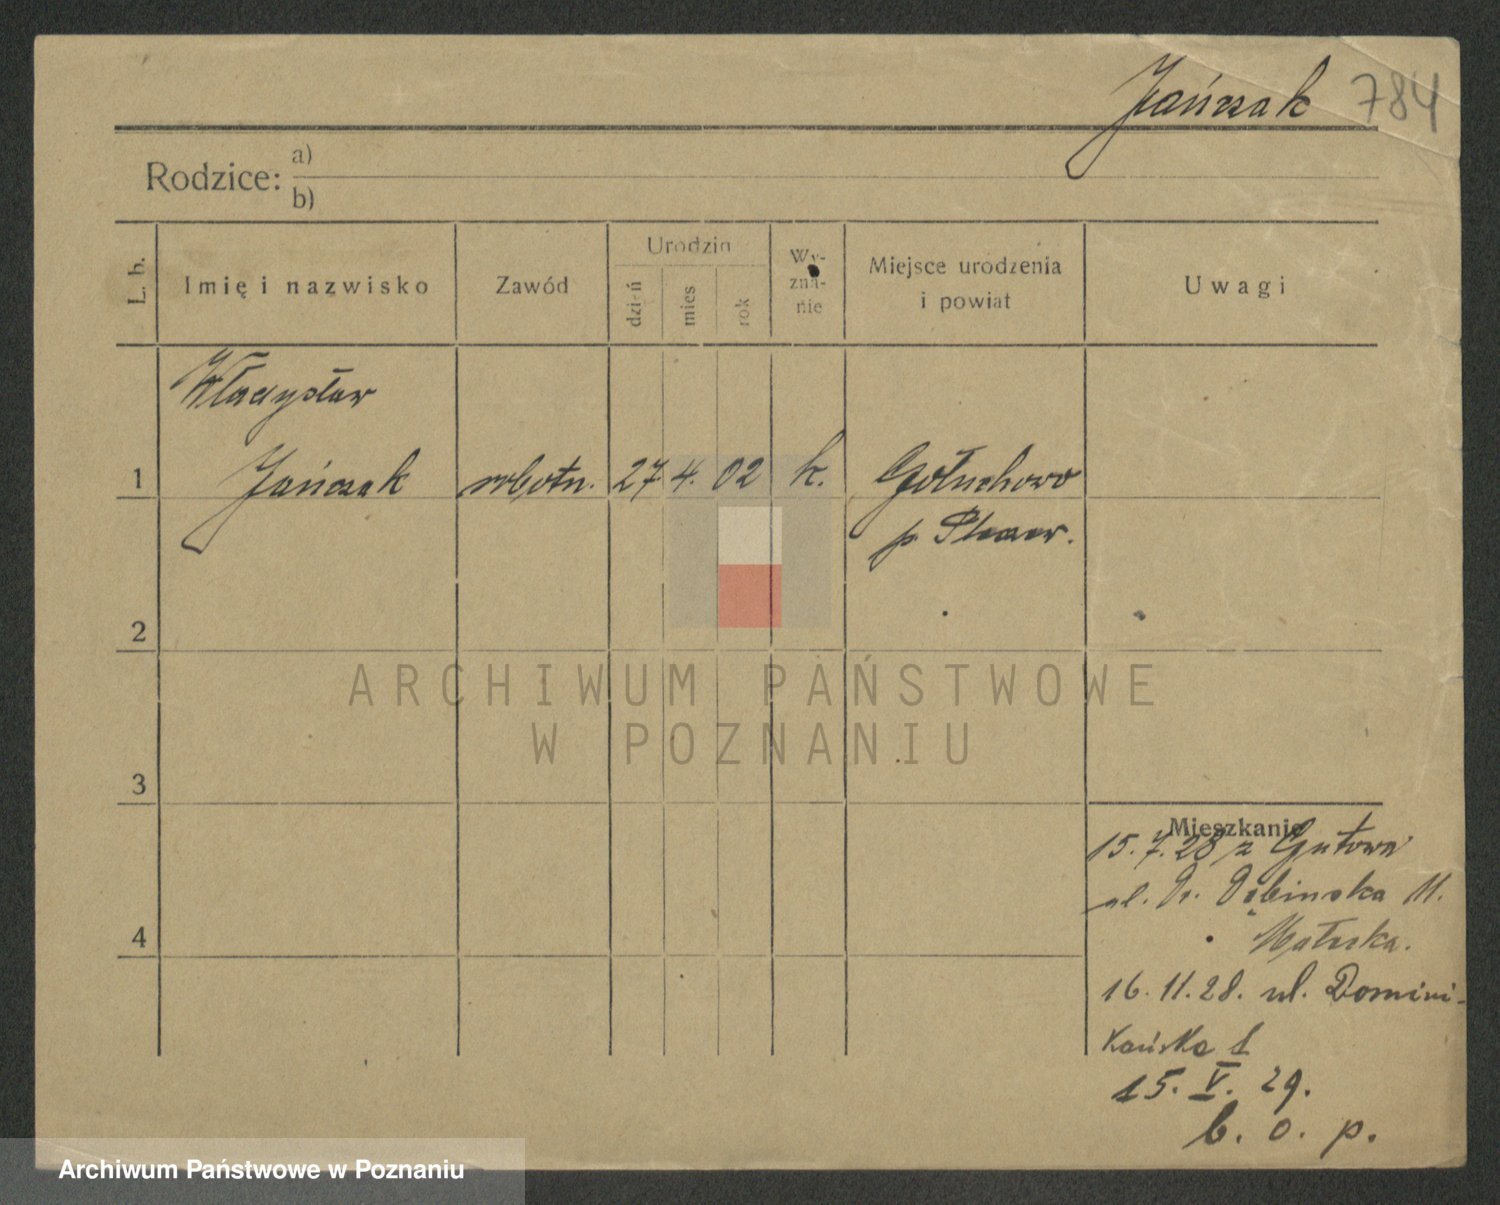 Jańczak 784
Rodzice:
a)
b)
L. b.
Imię i nazwisko
Zawód
Urodzin
dzień
mies
rok
Wy-
zna-
nie
Miejsce urodzenia
i powiat
Uwagi
Władysław
1 Jańczak robotn. 27 4. 02 k. Gołuchowo
p. Pleszew.
2
3
4
Mieszkanie
15.7.28 z Gutowa
ul. Dr. Dębinska 11.
16. 11. 28. ul. Domini-
kańska 1
15. V. 29.
b. o. p.
ARCHIWUM PAŃSTWOWE
W POZNANIU
Archiwum Państwowe w Poznaniu